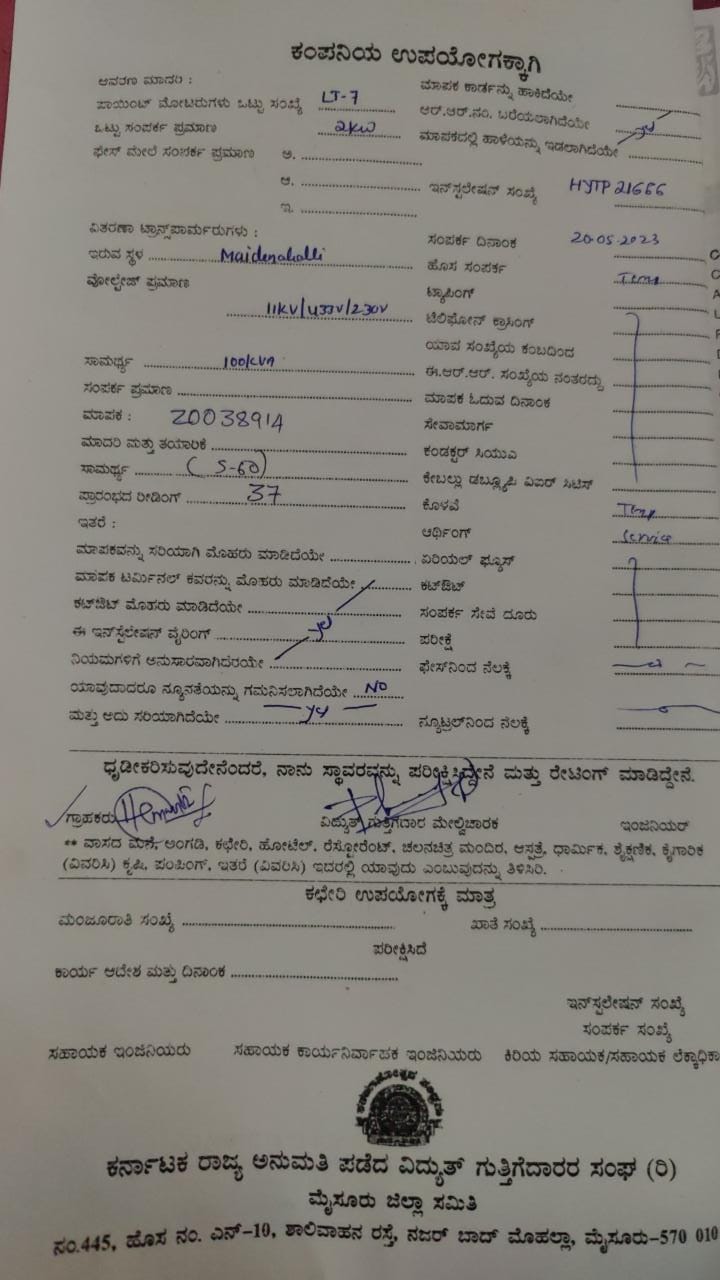 ಕಂಪನಿಯ ಉಪಯೋಗಕ್ಕಾಗಿ
ಆವರಣ ಮಾದರಿ :
ಮಾಪಕ ಕಾರ್ಡನ್ನು ಹಾಕಿದೆಯೇ
ಪಾಯಿಂಟ್ ಮೋಟರುಗಳು ಒಟ್ಟು ಸಂಖ್ಯೆ LT-7
ಆರ್.ಆರ್.ನಂ. ಬರೆಯಲಾಗಿದೆಯೇ
ಒಟ್ಟು ಸಂಪರ್ಕ ಪ್ರಮಾಣ 2KW
ಮಾಪಕದಲ್ಲಿ ಹಾಳೆಯನ್ನು ಇಡಲಾಗಿದೆಯೇ
ಫೇಸ್ ಮೇಲೆ ಸಂಪರ್ಕ ಪ್ರಮಾಣ ಅ.
ಆ.
ಇನ್‌ಸ್ಟಲೇಷನ್ ಸಂಖ್ಯೆ HYTP 21666
ಇ.
ವಿತರಣಾ ಟ್ರಾನ್ಸ್‌ಪಾರ್ಮರುಗಳು :
ಸಂಪರ್ಕ ದಿನಾಂಕ 20-05-2023
ಇರುವ ಸ್ಥಳ Maidanahalli
ಹೊಸ ಸಂಪರ್ಕ Temp
ವೋಲ್ಟೇಜ್ ಪ್ರಮಾಣ
ಟ್ಯಾಪಿಂಗ್
11KV/433V/230V
ಟೆಲಿಫೋನ್ ಕ್ರಾಸಿಂಗ್
ಯಾವ ಸಂಖ್ಯೆಯ ಕಂಬದಿಂದ
ಸಾಮರ್ಥ್ಯ 100KVA
ಈ.ಆರ್.ಆರ್. ಸಂಖ್ಯೆಯ ನಂತರದ್ದು
ಸಂಪರ್ಕ ಪ್ರಮಾಣ
ಮಾಪಕ ಓದುವ ದಿನಾಂಕ
ಮಾಪಕ : 20038914
ಸೇವಾಮಾರ್ಗ
ಮಾದರಿ ಮತ್ತು ತಯಾರಿಕೆ
ಕಂಡಕ್ಟರ್ ಸಿಯುಎ
ಸಾಮರ್ಥ್ಯ (5-60)
ಕೇಬಲ್ಲು ಡಬ್ಲ್ಯೂಪಿ ವಿಐರ್ ಸಿಟಿಸ್
ಪ್ರಾರಂಭದ ರೀಡಿಂಗ್ 37
ಕೊಳವೆ Temp
ಇತರೆ :
ಆರ್ಥಿಂಗ್ Service
ಮಾಪಕವನ್ನು ಸರಿಯಾಗಿ ಮೊಹರು ಮಾಡಿದೆಯೇ
ಏರಿಯಲ್ ಫ್ಯೂಸ್
ಮಾಪಕ ಟರ್ಮಿನಲ್ ಕವರನ್ನು ಮೊಹರು ಮಾಡಿದೆಯೇ
ಕಟ್‌ಔಟ್
ಕಟ್‌ಔಟ್ ಮೊಹರು ಮಾಡಿದೆಯೇ
ಸಂಪರ್ಕ ಸೇವೆ ದೂರು
ಈ ಇನ್‌ಸ್ಟಲೇಷನ್ ವೈರಿಂಗ್ yes
ಪರೀಕ್ಷೆ
ನಿಯಮಗಳಿಗೆ ಅನುಸಾರವಾಗಿದೆರಯೇ
ಫೇಸ್‌ನಿಂದ ನೆಲಕ್ಕೆ
ಯಾವುದಾದರೂ ನ್ಯೂನತೆಯನ್ನು ಗಮನಿಸಲಾಗಿದೆಯೇ NO
ಮತ್ತು ಅದು ಸರಿಯಾಗಿದೆಯೇ yes
ನ್ಯೂಟ್ರಲ್‌ನಿಂದ ನೆಲಕ್ಕೆ
ಧೃಡೀಕರಿಸುವುದೇನೆಂದರೆ, ನಾನು ಸ್ಥಾವರವನ್ನು ಪರೀಕ್ಷಿಸಿದ್ದೇನೆ ಮತ್ತು ರೇಟಿಂಗ್ ಮಾಡಿದ್ದೇನೆ.
ಗ್ರಾಹಕರು ವಿದ್ಯುತ್ ಗುತ್ತಿಗೆದಾರ ಮೇಲ್ವಿಚಾರಕ ಇಂಜಿನಿಯರ್
** ವಾಸದ ಮನೆ, ಅಂಗಡಿ, ಕಛೇರಿ, ಹೋಟೆಲ್, ರೆಸ್ಟೋರೆಂಟ್, ಚಲನಚಿತ್ರ ಮಂದಿರ, ಆಸ್ಪತ್ರೆ, ಧಾರ್ಮಿಕ, ಶೈಕ್ಷಣಿಕ, ಕೈಗಾರಿಕ
(ವಿವರಿಸಿ) ಕೃಷಿ, ಪಂಪಿಂಗ್, ಇತರೆ (ವಿವರಿಸಿ) ಇದರಲ್ಲಿ ಯಾವುದು ಎಂಬುವುದನ್ನು ತಿಳಿಸಿರಿ.
ಕಛೇರಿ ಉಪಯೋಗಕ್ಕೆ ಮಾತ್ರ
ಮಂಜೂರಾತಿ ಸಂಖ್ಯೆ ಖಾತೆ ಸಂಖ್ಯೆ
ಪರೀಕ್ಷಿಸಿದೆ
ಕಾರ್ಯ ಆದೇಶ ಮತ್ತು ದಿನಾಂಕ
ಇನ್‌ಸ್ಟಲೇಷನ್ ಸಂಖ್ಯೆ
ಸಂಪರ್ಕ ಸಂಖ್ಯೆ
ಸಹಾಯಕ ಇಂಜಿನಿಯರು ಸಹಾಯಕ ಕಾರ್ಯನಿರ್ವಾಹಕ ಇಂಜಿನಿಯರು ಕಿರಿಯ ಸಹಾಯಕ/ಸಹಾಯಕ ಲೆಕ್ಕಾಧಿಕಾ
ಕರ್ನಾಟಕ ರಾಜ್ಯ ಅನುಮತಿ ಪಡೆದ ವಿದ್ಯುತ್ ಗುತ್ತಿಗೆದಾರರ ಸಂಘ (ರಿ)
ಮೈಸೂರು ಜಿಲ್ಲಾ ಸಮಿತಿ
ನಂ.445, ಹೊಸ ನಂ. ಎನ್-10, ಶಾಲಿವಾಹನ ರಸ್ತೆ, ನಜರ್ ಬಾದ್ ಮೊಹಲ್ಲಾ, ಮೈಸೂರು-570 010